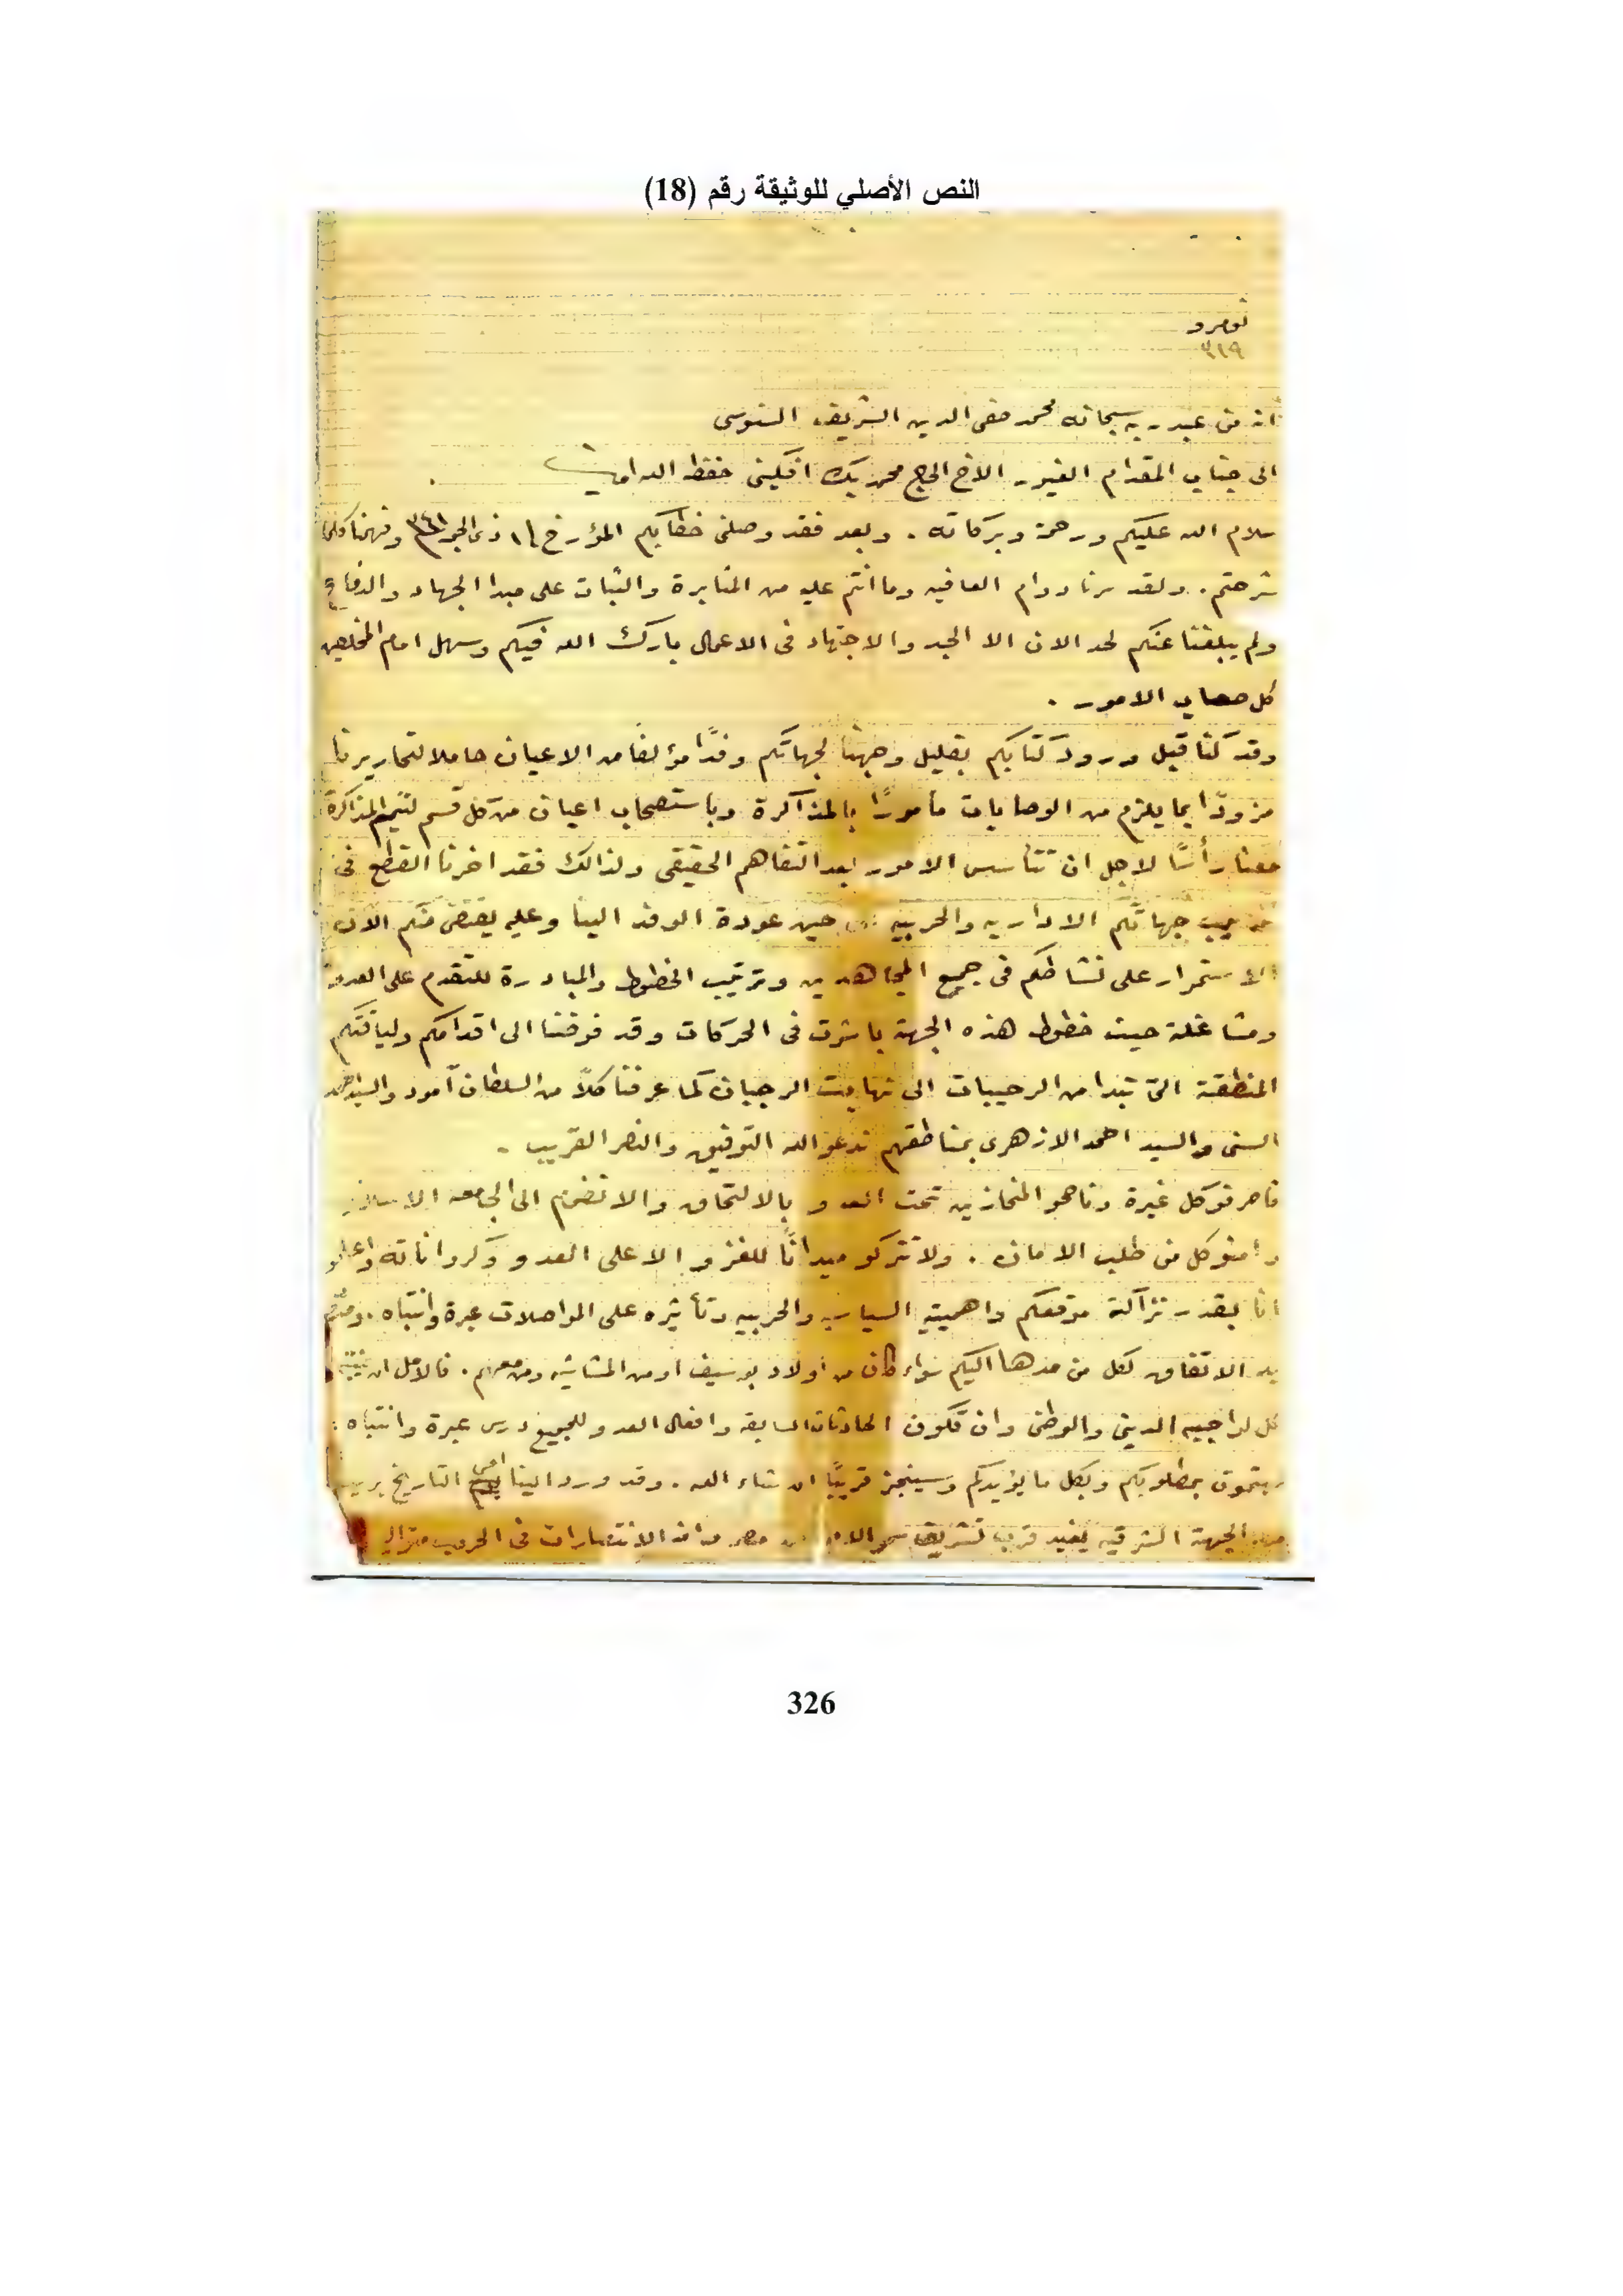 النص الأصلي للوثيقة رقم (18)
نومرو
٣١٩
انه من عبد ربه سبحانه محمد صفى الدين الشريف السنوسى
الى جناب المقدام الغيور الاخ الحاج محمد بك افكينى حفظه الله امين
سلام الله عليكم ورحمة وبركاته . وبعد فقد وصلنى خطابكم المؤرخ ذى الحجه وفهمنا كلما
شرحتم . ولقد سرنا دوام العافيه وما انتم عليه من المثابرة والثبات على مبدا الجهاد والدفاع
ولم يبلغنا عنكم لحد الان الا الجد والاجتهاد فى الاعمال بارك الله فيكم وسهل امام المخلصين
كل صعاب الامور .
وقد كنا قبل ورود كتابكم بقليل وجهنا لجهاتكم وفدًا مؤلفا من الاعيان حاملا لتحاريرنا
مزودًا بما يلزم من الوصايات مأمورًا بالمذاكرة وباستصحاب اعيان من كل قسم لتتم المذاكرة
معنا رأسًا لاجل ان تتأسس الامور بعد التفاهم الحقيقى ولذالك فقد اخرنا القطع فى
جهاتكم الاداريه والحربيه حين عودة الوفد الينا وعليه يقتضى منكم الآن
الاستمرار على نشاطكم فى جميع المجاهدين وترتيب الخطوط والمبادرة للتقدم على العدو
ومشاغلة حيث خطوط هذه الجهة باشرت فى الحركات وقد فوضنا الى اقدامكم ولياقتكم
المنطقة التى تبتدا من الرحيبات الى نهايت الرجبان كما عرفنا كلاً من السلطان آمود والسيد احمد
السنى والسيد احمد الازهرى بمناطقهم ندعو الله التوفيق والنصر القريب .
فاصرفو كل غيرة وناصحو المنحازين تحت العدو بالالتحاق والانضمام الى الجامعه
وامنو كل من طلب الامان . ولا تتركو ميدانًا للغزو الا على العدو
انا بقدر نزآكة موقعكم واهميته السياسيه والحربيه وتأثيره على المواصلات عبرة وانتباه .
الاتفاق لكل من اليكم سواء كان من اولاد بوسيف او من المشاشيه ومن معهم . فالامل ان
كل لواجبه الدينى والوطنى وان تكون الحادثات السابقه وافعال العدو للجميع درس عبرة وانتباه
بمطلوبكم وبكل ما يؤيدكم وسينجز قريبًا ان شاء الله . وقد ورد الينا امس التاريخ بريد
من الجهة الشرقيه يفيد قرب تشريف من مصر الانتصارات فى الحروب
326